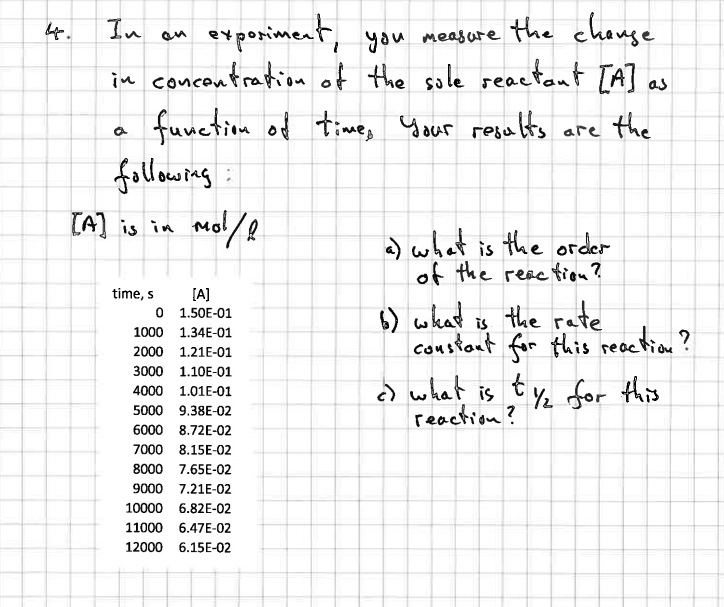 4. In an experiment, you measure the change
in concentration of the sole reactant [A] as
a function of time, Your results are the
following :
[A] is in mol/l
time, s [A]
0 1.50E-01
1000 1.34E-01
2000 1.21E-01
3000 1.10E-01
4000 1.01E-01
5000 9.38E-02
6000 8.72E-02
7000 8.15E-02
8000 7.65E-02
9000 7.21E-02
10000 6.82E-02
11000 6.47E-02
12000 6.15E-02
a) what is the order
of the reaction?
b) what is the rate
constant for this reaction?
c) what is t 1/2 for this
reaction?